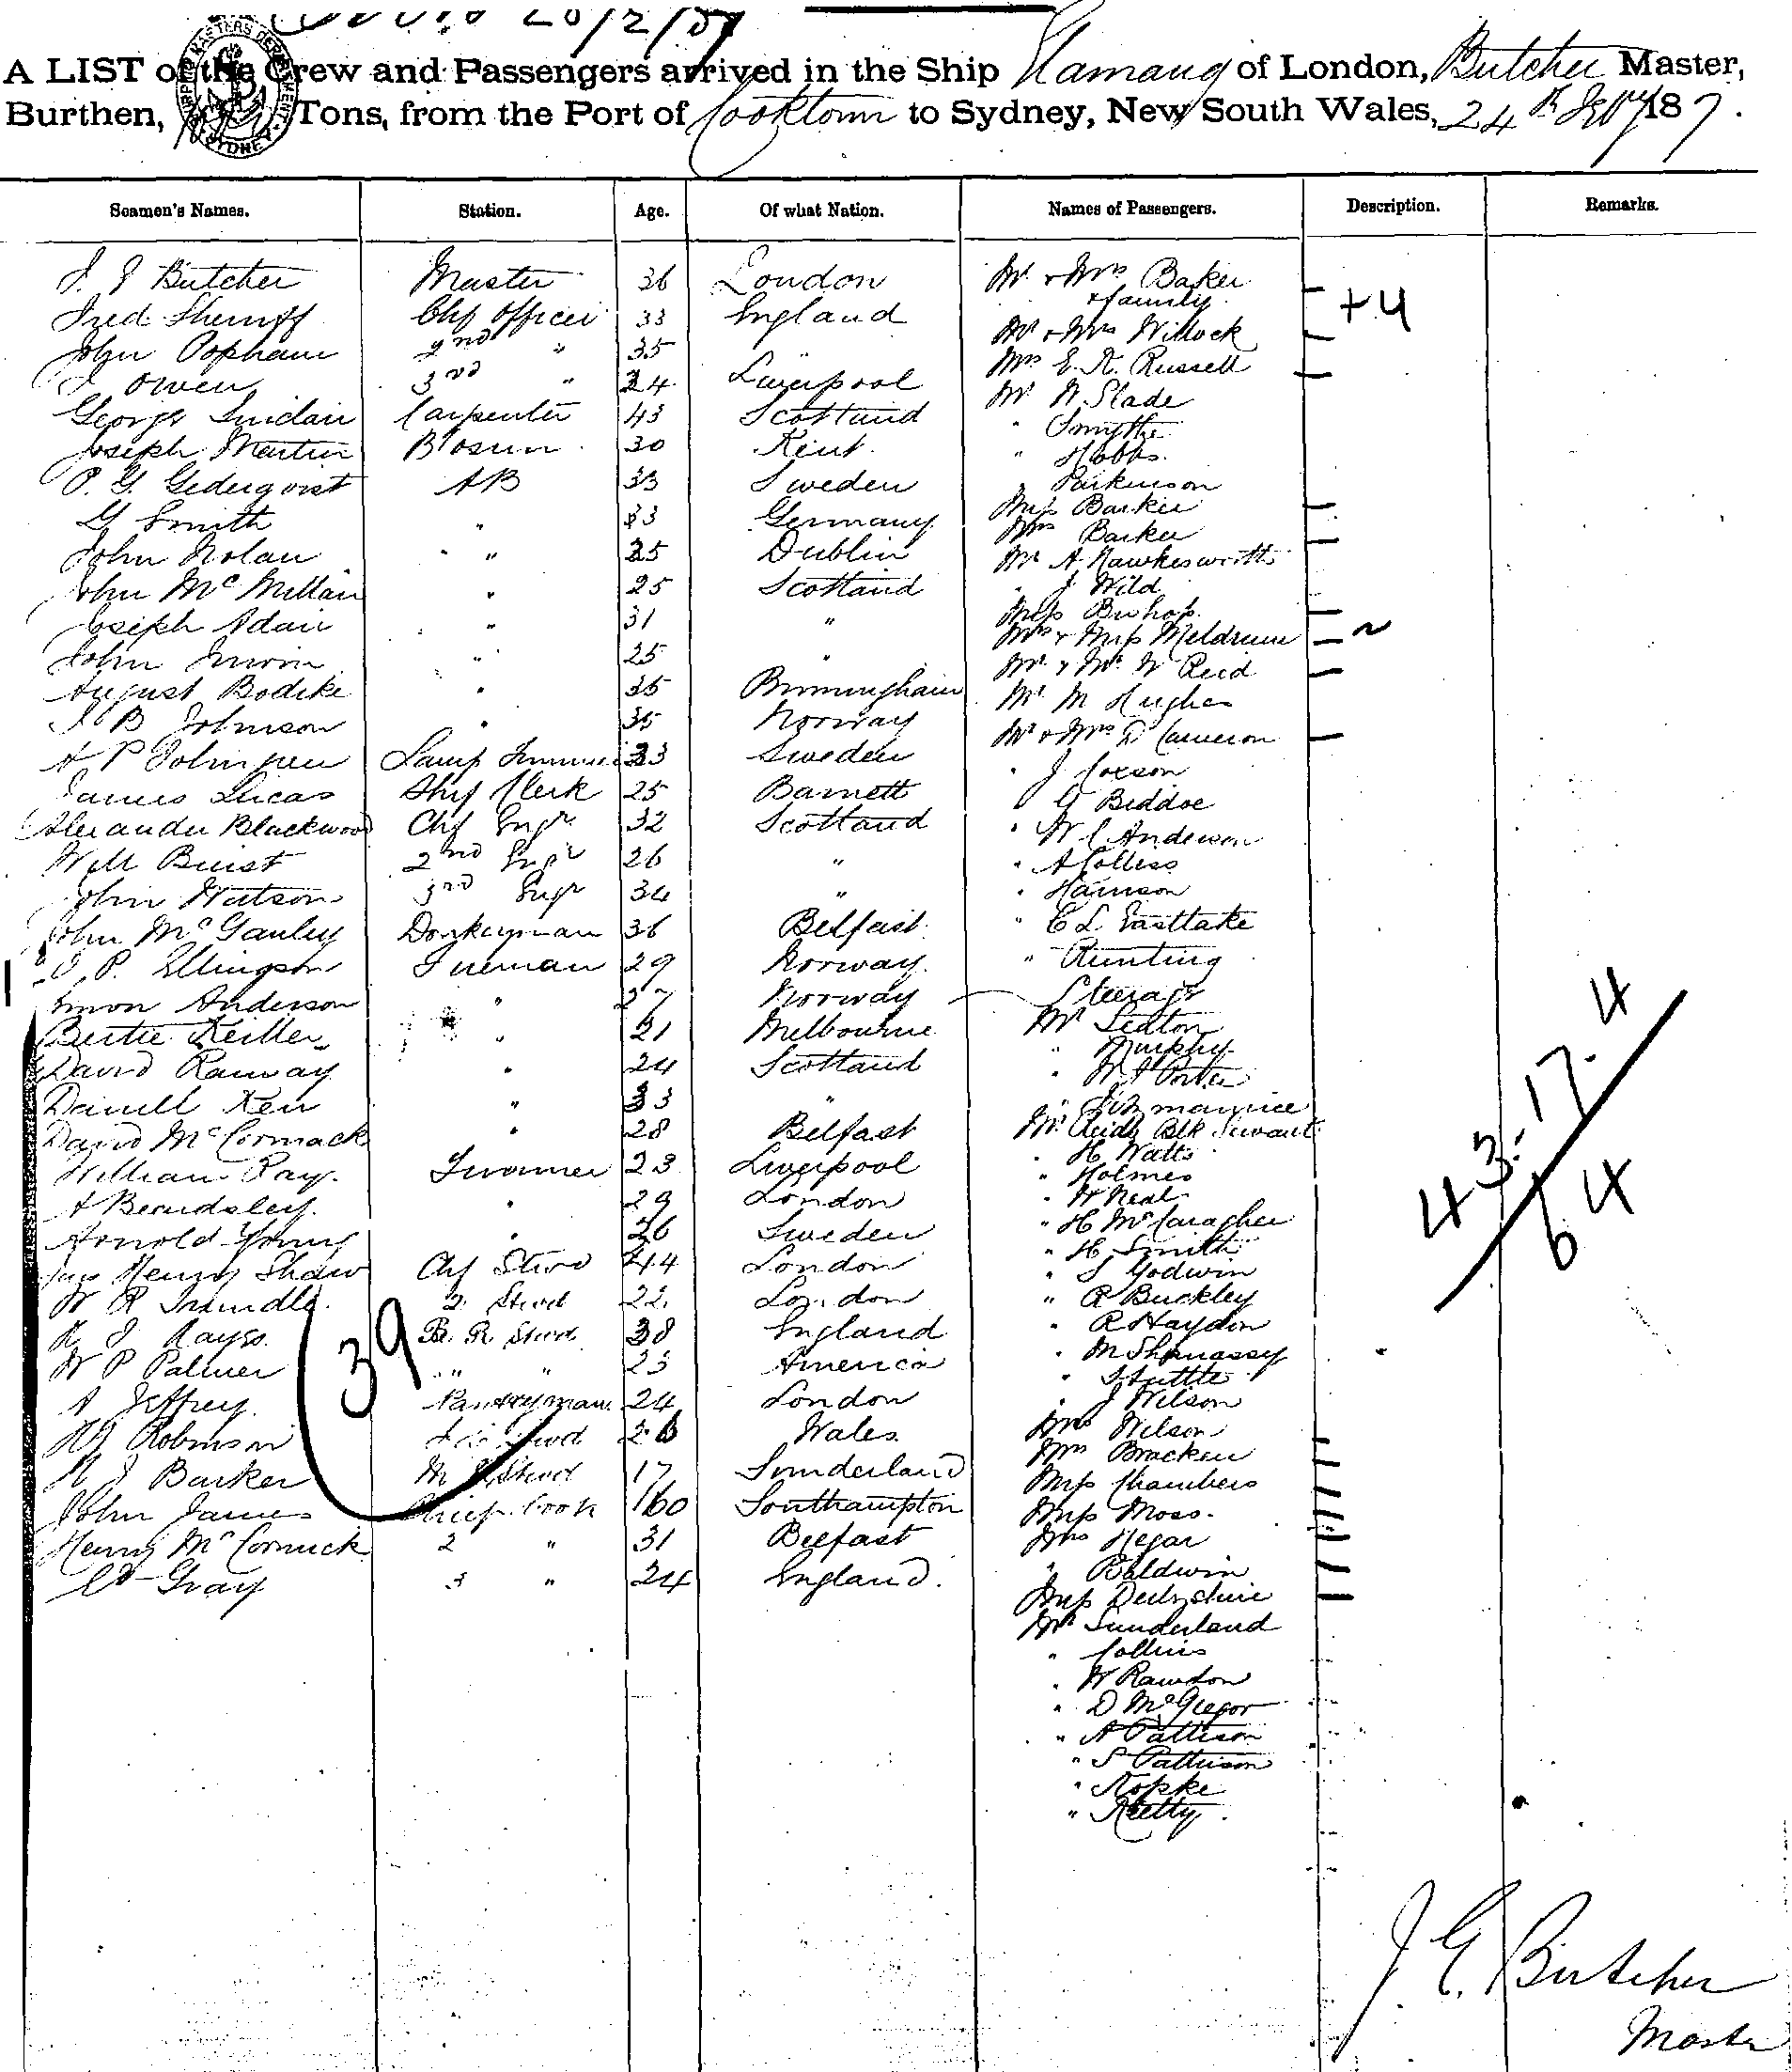 26/2/87
A LIST of the Crew and Passengers arrived in the Ship Kamaug of London, Butcher Master,
Burthen, Tons, from the Port of Cooktown to Sydney, New South Wales, 24th Feby 1887.
Seamen's Names. Station. Age. Of what Nation. Names of Passengers. Description. Remarks.
J. G Butcher Master 36 London Mr & Mrs Baker
& family + 4
Fred Sherriff Chf Officer 33 England Mr & Mrs Willock
John Popham 2nd " 35 " Mrs E. R. Russell
J Owen 3rd " 24 Liverpool Mr W. Slade
George Sinclair Carpenter 43 Scotland " Smythe
Joseph Martin Bosun 30 Kent " Hobbs.
P. G. Gederqvist AB 33 Sweden " Parkinson
G Smith " 33 Germany Miss Barker
Mrs Barker
John Nolan " 25 Dublin Mr A Hawkesworth
John McMillan " 25 Scotland " J Wild
Joseph Adair " 31 " Miss Bishop.
Mrs & Miss Meldrum
John Irwin " 25 " Mr & Mrs W Reid
August Bodike " 35 Birmingham Mr M Hughes
J B Johnson " 35 Norway Mr & Mrs D Cameron
A P Johnsen Lamp Trimmer 33 Sweden " J Coxson
James Lucas Ship Clerk 25 Barnett " G Beddoe
Alexander Blackwood Chf Engr 32 Scotland " W C Anderson
Will Buist 2nd Engr 26 " " A Colless
John Watson 3rd Engr 34 " " Harrison
John McGauley Donkeyman 36 Belfast " C L Eastlake
J. P. Ellingson Fireman 29 Norway " Runting
Simon Anderson " 27 Norway Steerage
Bertie Keiller " 21 Melbourne Mr Sexton
" Murphy
David Ramsay " 24 Scotland " W J Porter
Daniell Kerr " 33 " " Fitzmaurice
David McCormack " 28 Belfast Mr Reids Blk Servant
" H Watts
William Ray. Trimmer 23 Liverpool " Holmes
A Beardsley. " 29 London " W Neal
" H McCaragher
Arnold Young " 26 Sweden " H Smith
Jas Henry Shaw Chf Stwd 44 London " S Godwin
W R Trundle. 2. Stwd 22 London " R Buckley
R J Kayss. B. R. Stwd 38 England " R Haydon
W P Palmer " " 23 America " M Shanassy
" Tuttle
A Jeffrey. Pantryman 24 London " J Wilson
Robinson Stwd 26 Wales Mrs Wilson
Mrs Bracken
N J Barker M R Stwd 17 Sunderland Miss Chambers
John James Chief Cook 60 Southampton Miss Moss.
Henry McCormick 2 " 31 Belfast Mrs Hegar
Gray 3 " 24 England. " Baldwin
Miss Derbyshire
Mr Sunderland
" Collins
" W Rawdon
" D McGregor
" A Pattison
" S Pattison
" Kopke
" Kelly.
39
43.17.4
64
J G Butcher
Master